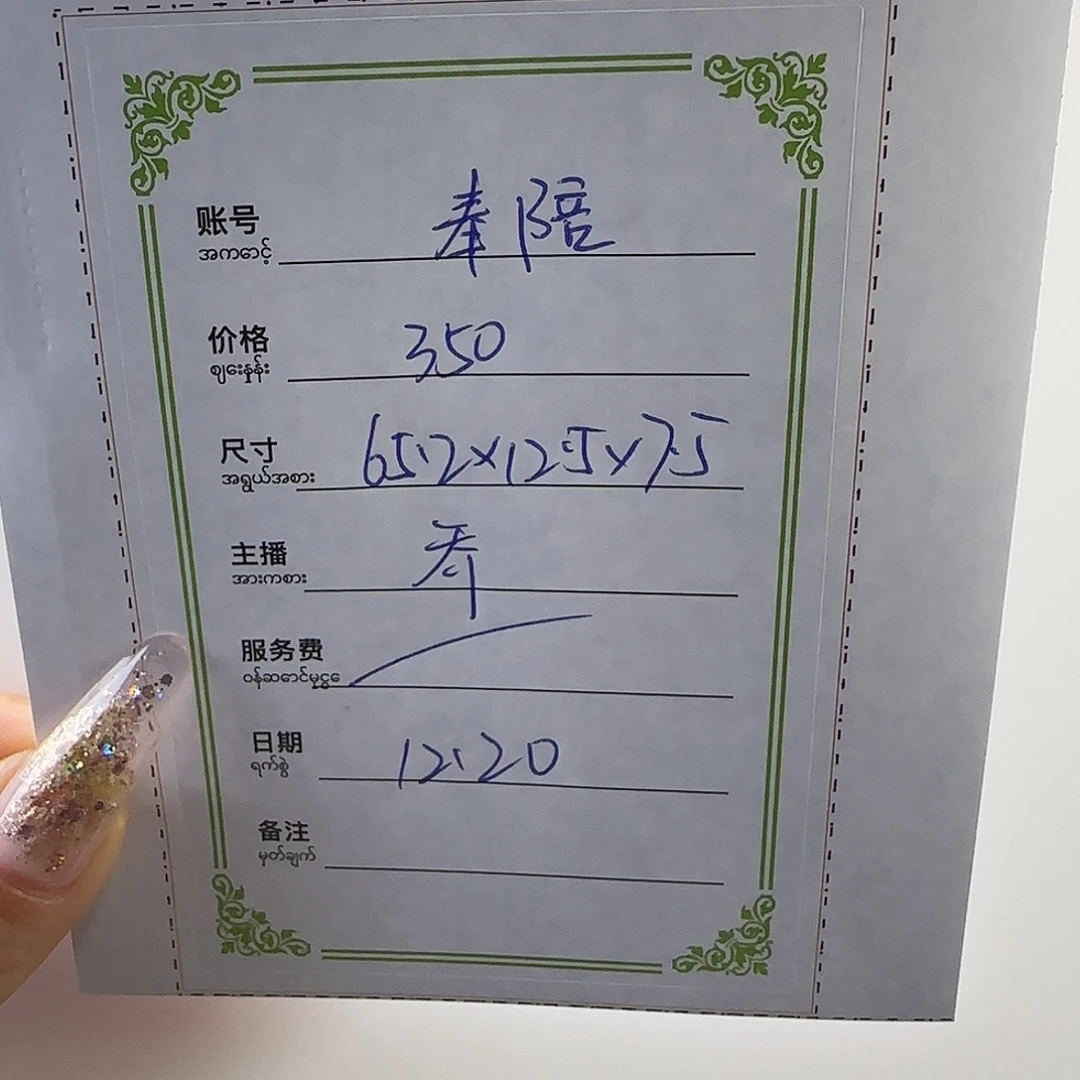 账号 奉陪
အကောင့်
价格 350
ဈေးနှုန်း
尺寸 65.2×12.5×7.5
အရွယ်အစား
主播
အားကစား
服务费
ဝန်ဆောင်မှုငွေ
日期 12.20
ရက်စွဲ
备注
မှတ်ချက်